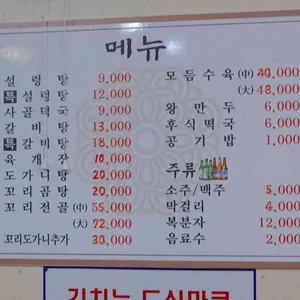 메뉴
설렁탕 9,000
특설렁탕 12,000
사골떡국 9,000
갈비탕 13,000
특갈비탕 18,000
육개장 10,000
도가니탕 20,000
꼬리곰탕 20,000
꼬리전골 (中) 55,000
(大) 72,000
꼬리도가니추가 30,000
모듬수육 (中) 40,000
(大) 48,000
왕만두 6,000
후식떡국 6,000
공기밥 1,000
주류
소주/맥주 5,000
막걸리 4,000
복분자 12,000
음료수 2,000